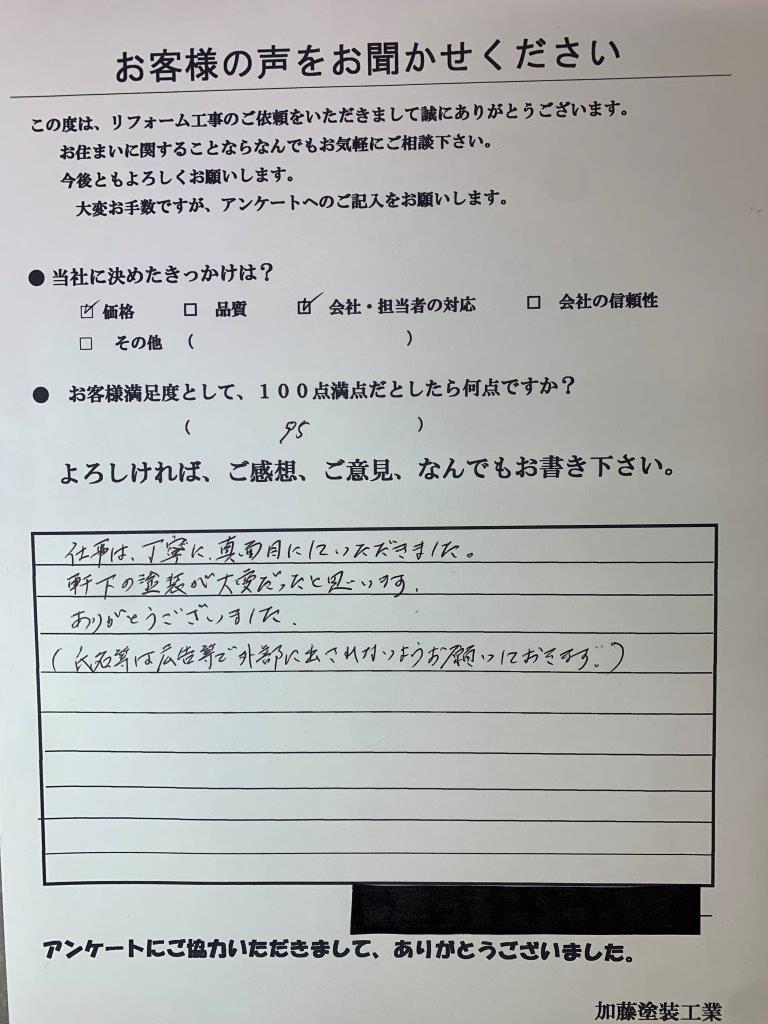 お客様の声をお聞かせください
この度は、リフォーム工事のご依頼をいただきまして誠にありがとうございます。
お住まいに関することならなんでもお気軽にご相談下さい。
今後ともよろしくお願いします。
大変お手数ですが、アンケートへのご記入をお願いします。
● 当社に決めたきっかけは？
☑ 価格 □ 品質 ☑ 会社・担当者の対応 □ 会社の信頼性
□ その他 （ ）
● お客様満足度として、１００点満点だとしたら何点ですか？
（ 95 ）
よろしければ、ご感想、ご意見、なんでもお書き下さい。
仕事は、丁寧に、真面目にしていただきました。
軒下の塗装が大変だったと思います。
ありがとうございました。
（氏名等は広告等で外部に出されないようお願いしておきます。）
アンケートにご協力いただきまして、ありがとうございました。
加藤塗装工業